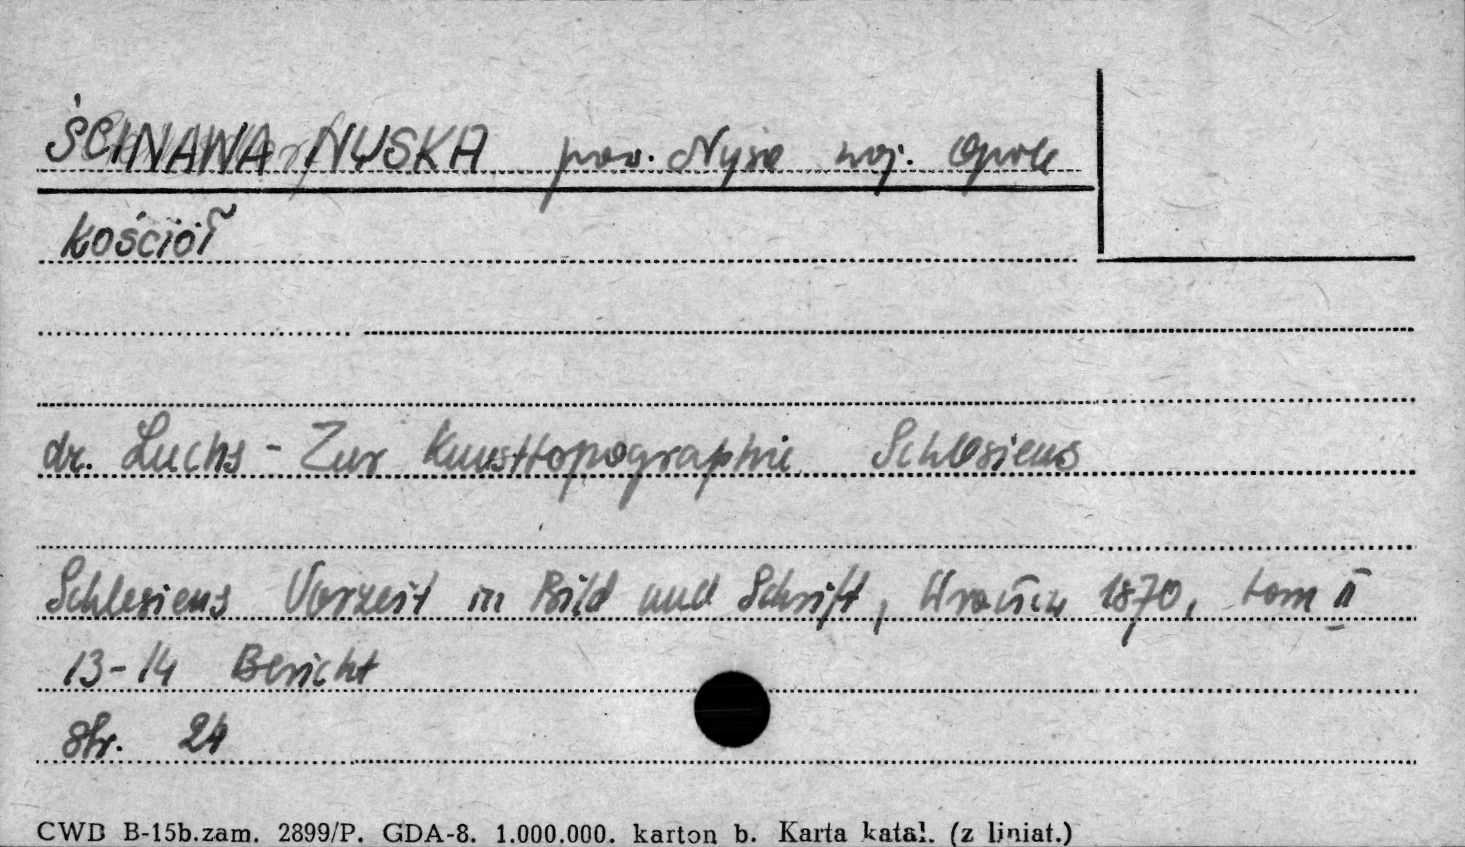 ŚCINAWA NYSKA pow. Nysa woj. Opole
kościół
dr. Luchs - Zur Kunsttopographie Schlesiens
Schlesiens Vorzeit in Bild und Schrift, Wrocław 1870, tom II
13-14 Bericht
str. 24
CWD B-15b.zam. 2899/P. GDA-8. 1.000.000. karton b. Karta katal. (z liniat.)